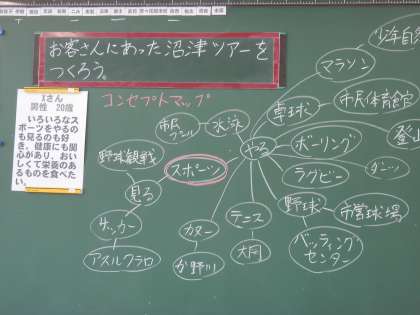 お客さんにあった沼津ツアーを
つくろう。
コンセプトマップ
Iさん
男性 20歳
いろいろなス
ポーツをやるの
も見るのも好
き。健康にも関
心があり、おいし
くて栄養のあ
るものを食べた
い。
スポーツ
見る
野球観戦
サッカー
アスルクラロ
やる
水泳
市民
プール
卓球
市民体育館
マラソン
ボーリング
ラグビー
野球
市営球場
バッティング
センター
テニス
大岡
カヌー
狩野川
登山